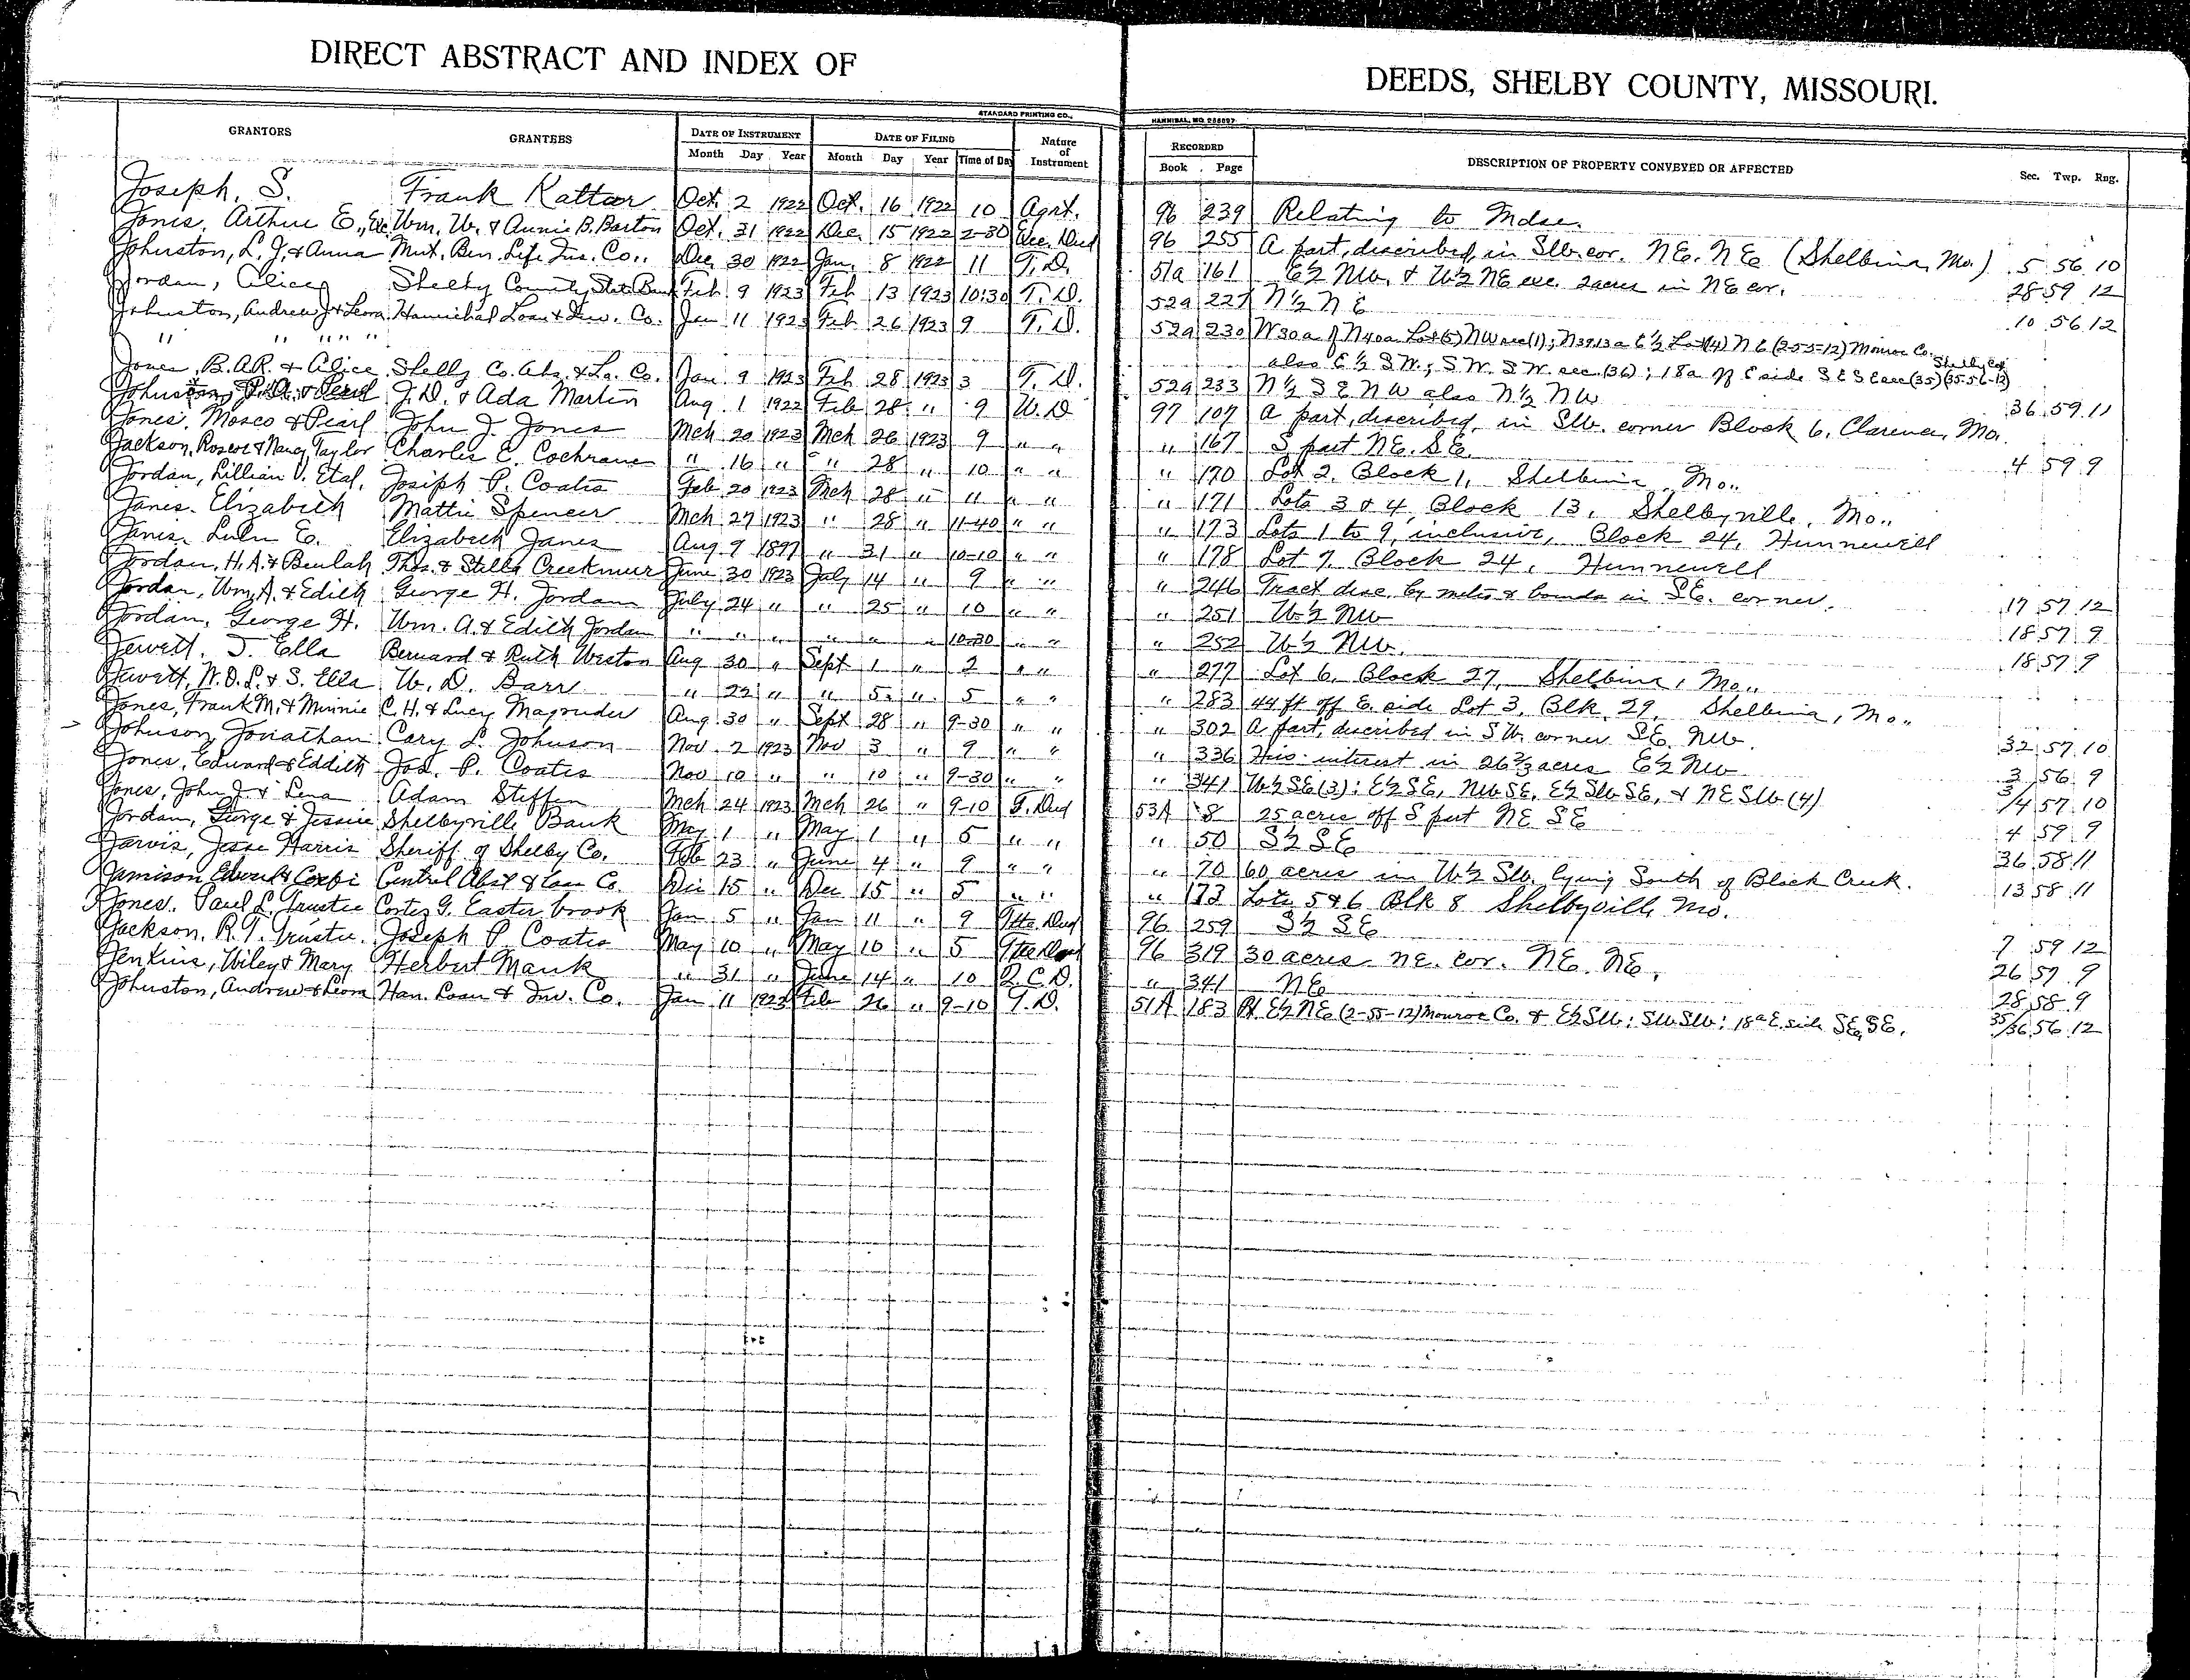 DIRECT ABSTRACT AND INDEX OF DEEDS, SHELBY COUNTY, MISSOURI.
STANDARD PRINTING CO., HANNIBAL, MO.
GRANTORS GRANTEES DATE OF INSTRUMENT DATE OF FILING Nature of Instrument RECORDED DESCRIPTION OF PROPERTY CONVEYED OR AFFECTED
Month Day Year Month Day Year Time of Day Book Page Sec. Twp. Rng.
Joseph, S. Frank Kattar Oct. 2 1922 Oct. 16 1922 10 Agrt. 96 239 Relating to Mdse.
Jones, Arthur E., Exc. Wm. W. & Annie B. Barton Oct. 31 1922 Dec. 15 1922 2-30 Exec. Deed 96 255 A part, described, in SW. cor. NE. NE (Shelbina, Mo.) 5 56 10
Johnston, L. J. & Anna Mut. Ben. Life Ins. Co.. Dec. 30 1922 Jan. 8 1922 11 T. D. 51a 161 E½ NW. & W½ NE exc. 2 acres in NE cor. 28 59 12
Jordan, Alice Shelby County State Bank Feb 9 1923 Feb 13 1923 10:30 T. D. 52a 227 N½ NE 10 56 12
Johnston, Andrew J & Leora Hannibal Loan & Inv. Co. Jan 11 1923 Feb 26 1923 9 T. D. 52a 230 W 30a of N 40a Lot (5) NW sec (1); N 39.13 a E½ Lot (4) NE (2-55-12) Monroe Co.
" " " " " also E½ SW.; SW. SW. sec. (36); 18a off E side SE SE sec (35) (35-56-12) Shelby Co
Jones, B. A. R. & Alice Shelby Co. Abs. & Lo. Co. Jan. 9 1923 Feb 28 1923 3 T. D. 52a 233 N½ SE NW also N½ NW 36 59 11
J. D. & Ada Martin Aug. 1 1922 Feb 28 " 9 W. D 97 107 A part, described, in SW. corner Block 6, Clarence, Mo.
Jones, Mosco & Pearl John J. Jones Mch 20 1923 Mch 26 1923 9 " " " 167 S part NE. SE. 4 59 9
Jackson, Roscoe & Nancy Taylor Charles E. Cochrane " 16 " " 28 " 10 " " " 170 Lot 2, Block 1, Shelbina, Mo..
Jordan, Lillian V. Etal. Joseph P. Coates Feb 20 1923 Mch 28 " 11 " " " 171 Lots 3 & 4, Block 13, Shelbyville, Mo..
Janes, Elizabeth Mattie Spencer Mch 27 1923 " 28 " 11-40 " " " 173 Lots 1 to 9, inclusive, Block 24, Hunnewell
Janes, Lulu E. Elizabeth Janes Aug 9 1897 " 31 " 10-10 " " " 178 Lot 7, Block 24, Hunnewell
Jordan, H. A. & Beulah Thos. & Stella Creekmur June 30 1923 July 14 " 9 " " " 246 Tract desc. by metes & bounds in SE. corner. 17 57 12
Jordan, Wm. A. & Edith George H. Jordan July 24 " " 25 " 10 " " " 251 W½ NW 18 57 9
Jordan, George H. Wm. A. & Edith Jordan " " " " " " 10-30 " " " 252 W½ NW. 18 57 9
Jewett, J. Ella Bernard & Ruth Weston Aug 30 " Sept 1 " 2 " " " 277 Lot 6, Block 27, Shelbina, Mo..
Jewett, W. O. L. & S. Ella W. D. Barr " 22 " " 5 " 5 " " " 283 44 ft off E. side Lot 3, Blk. 29, Shelbina, Mo..
Jones, Frank M. & Minnie C. H. & Lucy Magruder Aug 30 " Sept 28 " 9-30 " " " 302 A part, described in SW. corner SE. NW. 32 57 10
Johnson, Jonathan Cary L. Johnson Nov. 2 1923 Nov 3 " 9 " " " 336 His interest in 26⅔ acres E½ NW 3 56 9
Jones, Edward & Eddith Jos. P. Coates Nov 10 " " 10 " 9-30 " " " 341 W½ SE (3); E½ SE, NW SE, E½ SW SE, & NE SW (4) 3/4 57 10
Jones, John J. & Lena Adam Steffen Mch 24 1923 Mch 26 " 9-10 T. Deed 53A 8 25 acres off S part NE SE 4 59 9
Jordan, George & Jessie Shelbyville Bank May 1 " May 1 " 5 " " " 50 S½ SE 36 58 11
Jarvis, Jesse Harris Sheriff of Shelby Co. Feb 23 " June 4 " 9 " " " 70 60 acres in W½ SW. lying South of Black Creek. 13 58 11
Jamison Central Abst & Loan Co. Dec 15 " Dec 15 " 5 " " " 173 Lots 5 & 6 Blk 8 Shelbyville Mo.
Jones, Paul L. Trustee Cortez G. Easterbrook Jan 5 " Jan 11 " 9 Tte. Deed 96 259 S½ SE 7 59 12
Jackson, R. T. Trustee. Joseph P. Coates May 10 " May 10 " 5 Ttee Deed 96 319 30 acres ne. cor. NE. NE. 26 57 9
Jenkins, Wiley & Mary Herbert Mauk " 31 " June 14 " 10 Q. C. D. " 341 NE 28 58 9
Johnston, Andrew & Leora Han. Loan & Inv. Co. Jan 11 1923 Feb 26 " 9-10 T. D. 51A 183 Pt E½ NE (2-55-12) Monroe Co. & E½ SW; SW SW; 18a E side SE, SE. 35/36 56 12